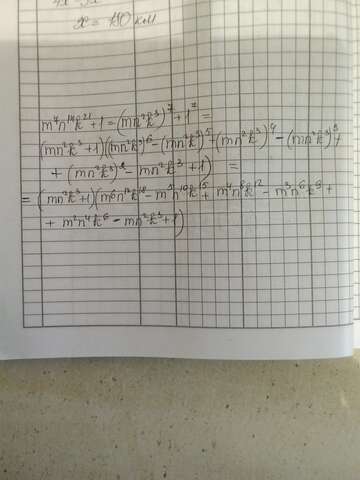 x = 180 км
m⁷n¹⁴k²¹+1 = (mn²k³)⁷+1⁷ =
(mn²k³+1)((mn²k³)⁶-(mn²k³)⁵+(mn²k³)⁴-(mn²k³)³+
+ (mn²k³)² - mn²k³+1) =
= (mn²k³+1)(m⁶n¹²k¹⁸-m⁵n¹⁰k¹⁵+m⁴n⁸k¹²-m³n⁶k⁹+
+ m²n⁴k⁶ - mn²k³+1)